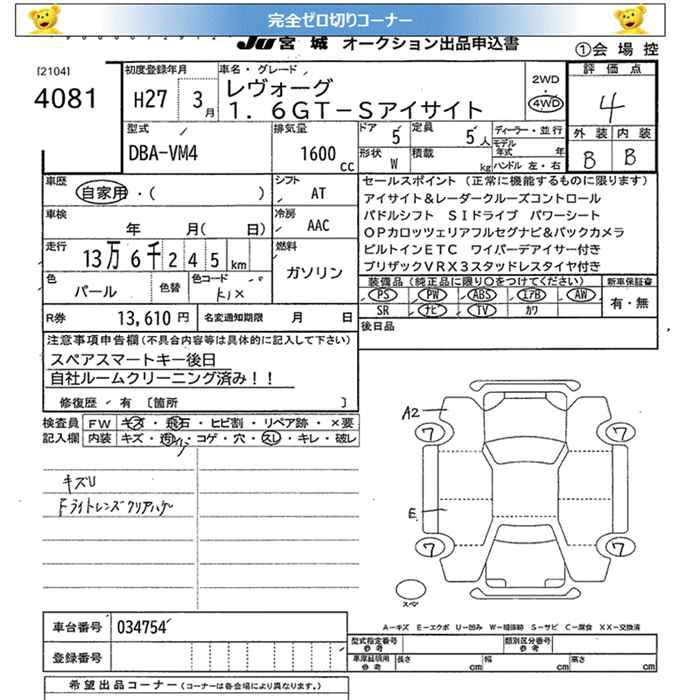 完全ゼロ切りコーナー
JU 宮城 オークション出品申込書
①会場控
[2104]
4081
初度登録年月
H27 3月
車名・グレード
レヴォーグ
1.6GT-Sアイサイト
2WD
4WD
評価点
4
外装 内装
B B
型式
DBA-VM4
排気量
1600 cc
ドア 5
定員 5人
形状 W
積載 kg
ディーラー・並行
モデル年式 年
ハンドル 左・右
車歴
自家用・( )
シフト
AT
車検
年 月( 日)
冷房
AAC
走行
13万6千245km
燃料
ガソリン
色
パール
色替
色コード
K1X
R券 13,610円
名変通知期限 月 日
セールスポイント (正常に機能するものに限ります)
アイサイト&レーダークルーズコントロール
パドルシフト SIドライブ パワーシート
OPカロッツェリアフルセグナビ&バックカメラ
ビルトインETC ワイパーデアイサー付き
ブリザックVRX3スタッドレスタイヤ付き
装備品(純正品に限り○をつけてください)
PS PW ABS エアB AW
SR ナビ TV カワ
新車保証書
有・無
後日品
注意事項申告欄(不具合内容等は具体的に記入して下さい)
スペアスマートキー後日
自社ルームクリーニング済み!!
修復歴・有 [箇所 ]
検査員記入欄
FW キズ・飛石・ヒビ割・リペア跡・×要
内装 キズ・汚れ・コゲ・穴・スレ・キレ・破レ
キズU
Fライトレンズクリアハゲ
A2
7 7
E
7 7
スペア
A-キズ E-エクボ U-凹み W-補修跡 S-サビ C-腐食 XX-交換済
車台番号 034754
登録番号
型式指定番号 参考
類別区分番号 参考
車庫証明用 参考 長さ cm 幅 cm 高さ cm
希望出品コーナー(コーナーは各会場により異なります。)